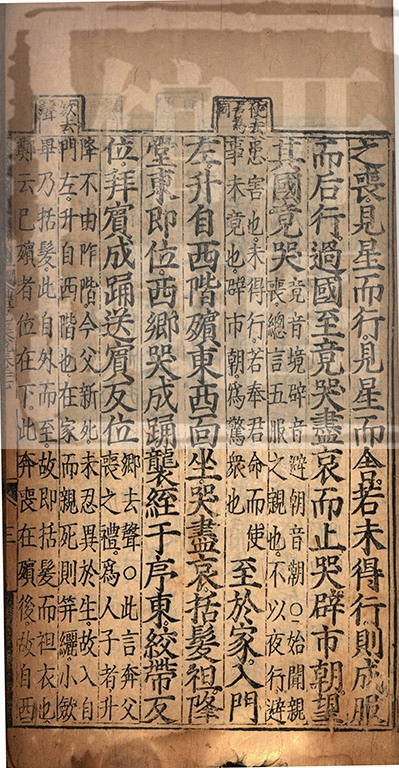 之喪見星而行見星而舍若未得行則成服
而后行過國至竟哭盡哀而止哭辟市朝望
其國竟哭
竟音境辟音避朝音潮○始聞親
喪總言五服之親也不以夜行避
患害也未得行若奉君命而使
事未竟也辟市朝爲驚衆也
至於家入門
左升自西階殯東西面坐哭盡哀括髮袒降
堂東即位西鄉哭成踊襲絰于序東絞帶反
位拜賓成踊送賓反位
鄉去聲○此言奔父
喪之禮爲人子者升
降不由阼階今父新死未忍異於生故入自
門左升自西階也在家而親死則笄纚小斂
畢乃括髮此自外而至故即括髮而袒衣也
鄭云已殯者位在下此奔喪在殯後故自西
絞去
聲
三